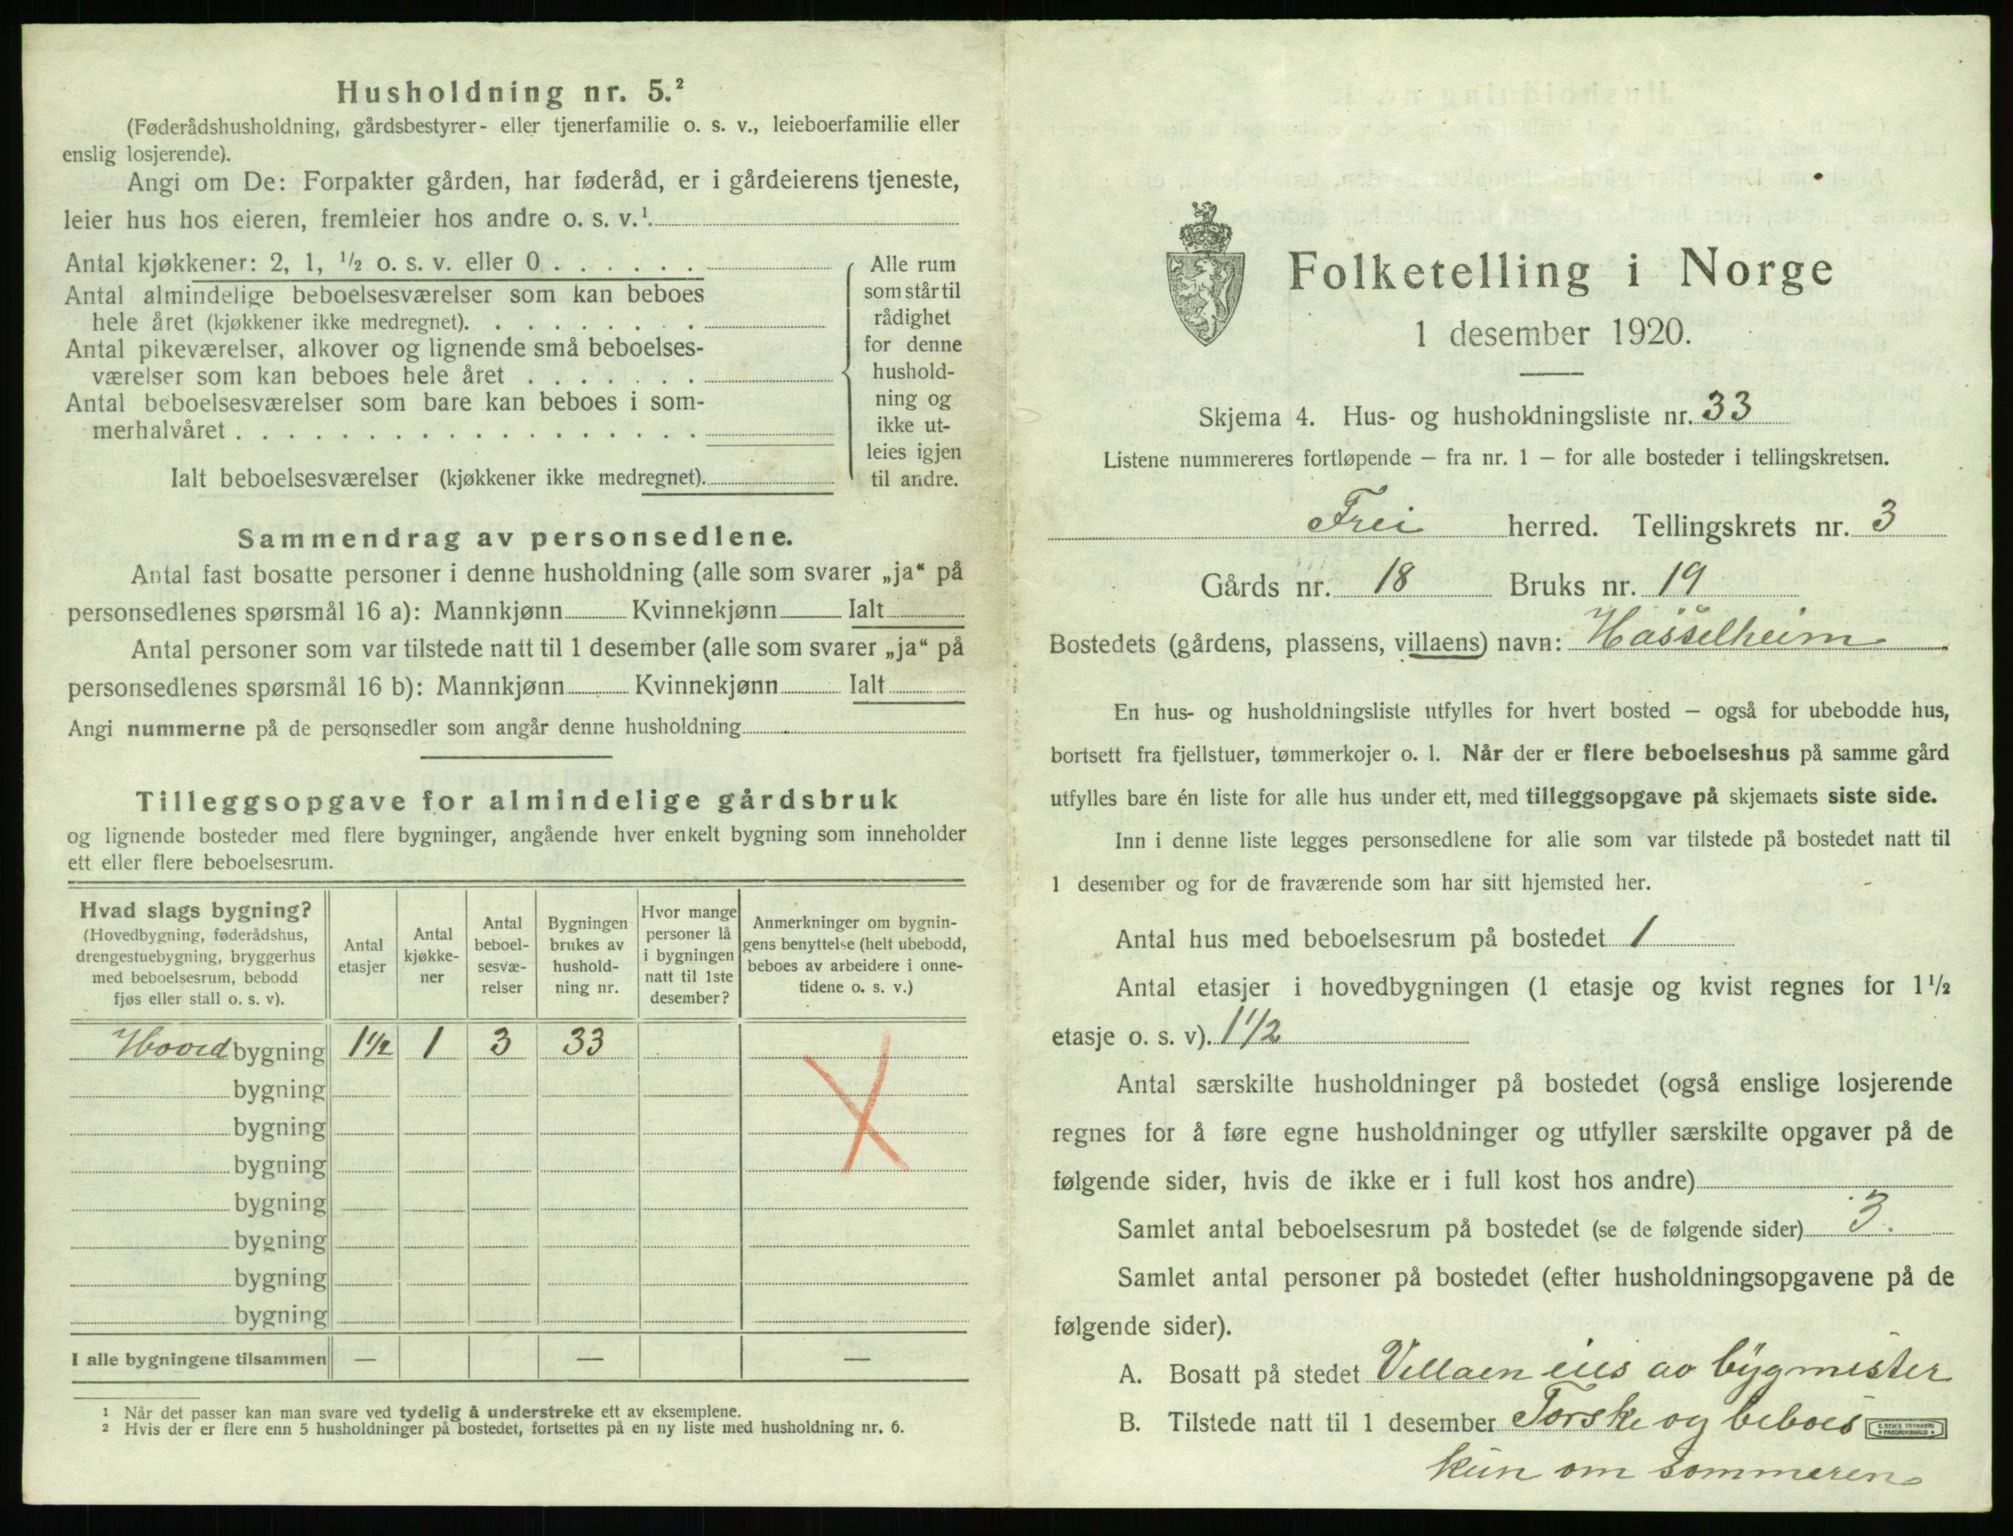 Husholdning nr. 5.²
(Føderådshusholdning, gårdsbestyrer- eller tjenerfamilie o. s. v., leieboerfamilie eller
enslig losjerende).
Angi om De: Forpakter gården, har føderåd, er i gårdeierens tjeneste,
leier hus hos eieren, fremleier hos andre o. s. v.¹
Antal kjøkkener: 2, 1, ½ o. s. v. eller 0 . . . . . .
Antal almindelige beboelsesværelser som kan beboes
hele året (kjøkkener ikke medregnet). . . . . . . . .
Antal pikeværelser, alkover og lignende små beboelses-
værelser som kan beboes hele året . . . . . . .
Antal beboelsesværelser som bare kan beboes i som-
merhalvåret . . . . . . . . . . . . . . . . . .
Ialt beboelsesværelser (kjøkkener ikke medregnet).
Alle rum
som står til
rådighet
for denne
hushold-
ning og
ikke ut-
leies igjen
til andre.
Sammendrag av personsedlene.
Antal fast bosatte personer i denne husholdning (alle som svarer „ja“ på
personsedlenes spørsmål 16 a): Mannkjønn Kvinnekjønn Ialt
Antal personer som var tilstede natt til 1 desember (alle som svarer „ja“ på
personsedlenes spørsmål 16 b): Mannkjønn Kvinnekjønn Ialt
Angi nummerne på de personsedler som angår denne husholdning
Tilleggsopgave for almindelige gårdsbruk
og lignende bosteder med flere bygninger, angående hver enkelt bygning som inneholder
ett eller flere beboelsesrum.
Hvad slags bygning?
(Hovedbygning, føderådshus,
drengestuebygning, bryggerhus
med beboelsesrum, bebodd
fjøs eller stall o. s. v).
Antal
etasjer
Antal
kjøkke-
ner
Antal
beboel-
sesvæ-
relser
Bygningen
brukes av
hushold-
ning nr.
Hvor mange
personer lå
i bygningen
natt til 1ste
desember?
Anmerkninger om bygnin-
gens benyttelse (helt ubebodd,
beboes av arbeidere i onne-
tidene o. s. v.)
Hovedbygning 1½ 1 3 33
bygning
bygning
bygning
bygning
bygning
bygning
bygning
I alle bygningene tilsammen — — —
¹ Når det passer kan man svare ved tydelig å understreke ett av eksemplene.
² Hvis der er flere enn 5 husholdninger på bostedet, fortsettes på en ny liste med husholdning nr. 6.
Folketelling i Norge
1 desember 1920.
Skjema 4. Hus- og husholdningsliste nr. 33
Listene nummereres fortløpende – fra nr. 1 – for alle bosteder i tellingskretsen.
Frei herred. Tellingskrets nr. 3
Gårds nr. 18 Bruks nr. 19
Bostedets (gårdens, plassens, villaens) navn: Hasselheim
En hus- og husholdningsliste utfylles for hvert bosted – også for ubebodde hus,
bortsett fra fjellstuer, tømmerkojer o. l. Når der er flere beboelseshus på samme gård
utfylles bare én liste for alle hus under ett, med tilleggsopgave på skjemaets siste side.
Inn i denne liste legges personsedlene for alle som var tilstede på bostedet natt til
1 desember og for de fraværende som har sitt hjemsted her.
Antal hus med beboelsesrum på bostedet 1
Antal etasjer i hovedbygningen (1 etasje og kvist regnes for 1½
etasje o. s. v). 1½
Antal særskilte husholdninger på bostedet (også enslige losjerende
regnes for å føre egne husholdninger og utfyller særskilte opgaver på de
følgende sider, hvis de ikke er i full kost hos andre)
Samlet antal beboelsesrum på bostedet (se de følgende sider) 3.
Samlet antal personer på bostedet (efter husholdningsopgavene på de
følgende sider).
A. Bosatt på stedet Villaen eies av bygmester
B. Tilstede natt til 1 desember Torske og beboes
kun om sommeren